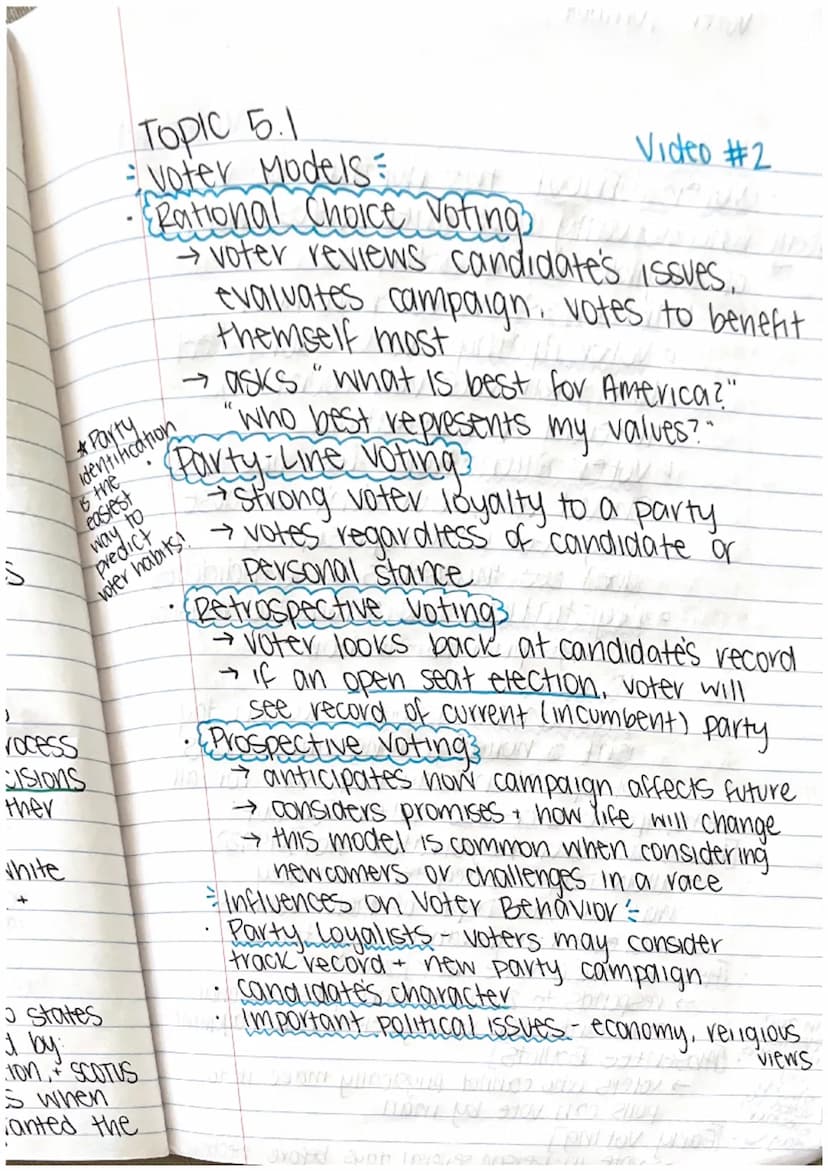 Topic 5.1
Video #2
Voter Models
· Rational Choice Voting
→ voter reviews candidate's issues,
evaluates campaign, votes to benefit
themself most
→ asks "what is best for America?"
"who best represents my values?"
* Party
identification
is the
easiest
way to
predict
voter habits!
· Party-Line Voting
→ strong voter loyalty to a party
→ votes regardless of candidate or
personal stance
· Retrospective Voting
→ voter looks back at candidate's record
→ if an open seat election, voter will
see record of current (incumbent) party
· Prospective Voting
→ anticipates how campaign affects future
→ considers promises + how life will change
→ this model is common when considering
newcomers or challenges in a race
Influences on Voter Behavior
· Party Loyalists - voters may consider
track record + new party campaign
· candidate's character
· Important political issues - economy, religious
views
s
rocess
cisions
ther
white
+
o states
d by:
ion, + SCOTUS
s when
anted the